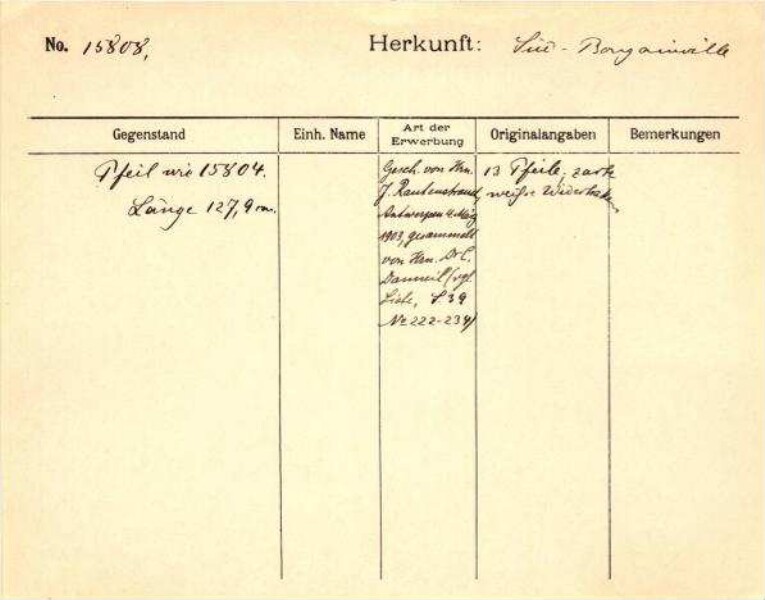 No. 15808,
Herkunft: Süd-Bougainville
Gegenstand
Einh. Name
Art der
Erwerbung
Originalangaben
Bemerkungen
Pfeil wie 15804.
Länge 127,9 cm.
Gesch. von Hrn.
J. Rautenstrauch,
Antwerpen 4. März
1903, gesammelt
von Hrn. Dr. C.
Danneil (vgl.
Liste, S 39
No 222-234)
13 Pfeile; zarte
weiße Widerhaken